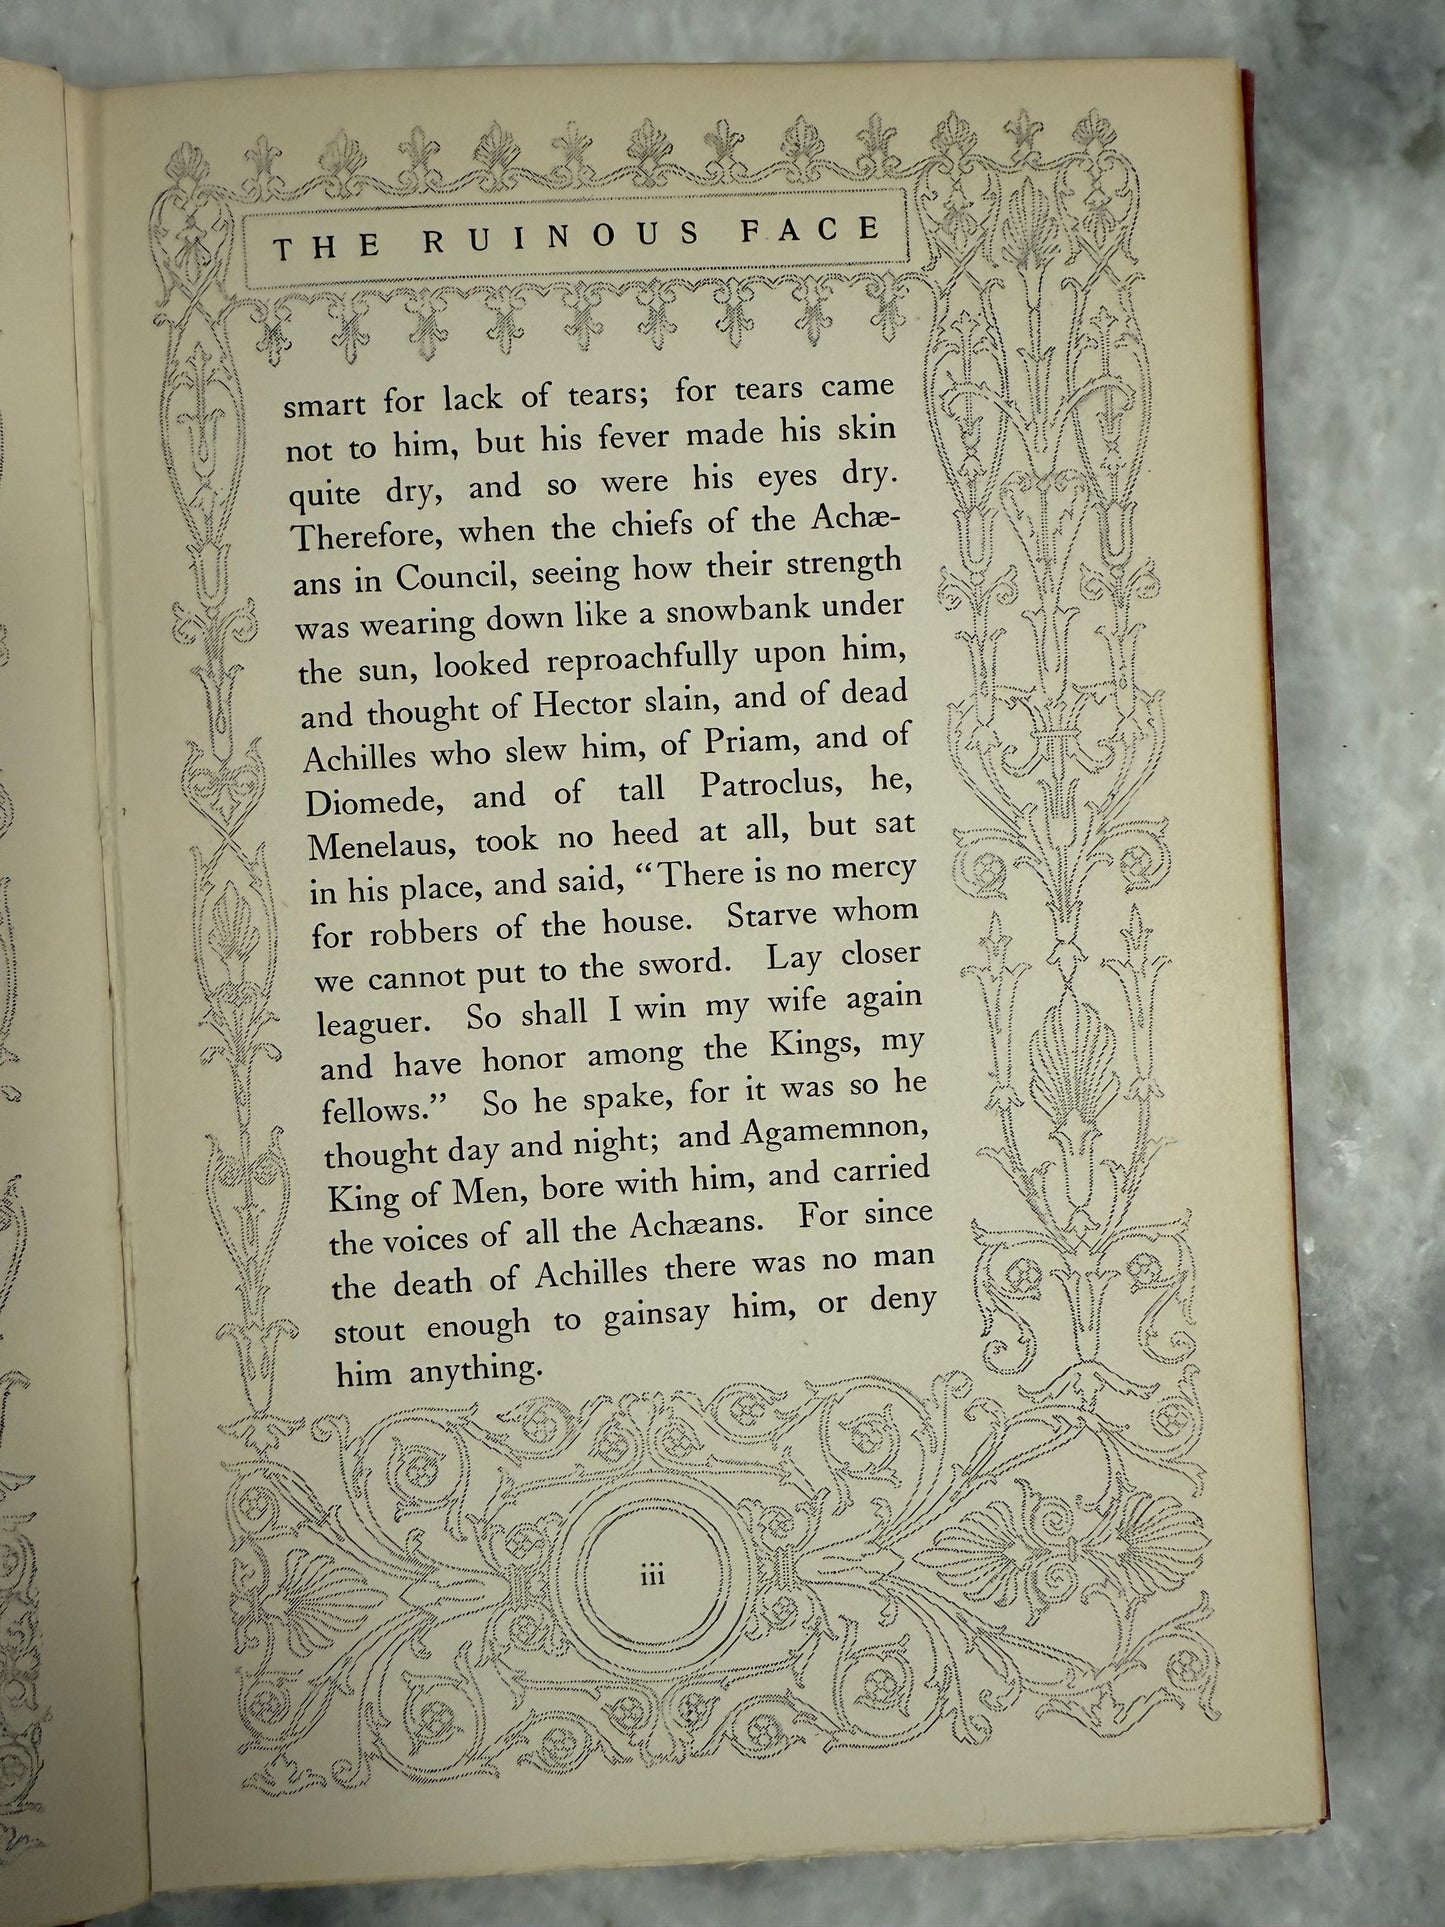 THE RUINOUS FACE
smart for lack of tears; for tears came
not to him, but his fever made his skin
quite dry, and so were his eyes dry.
Therefore, when the chiefs of the Achæ-
ans in Council, seeing how their strength
was wearing down like a snowbank under
the sun, looked reproachfully upon him,
and thought of Hector slain, and of dead
Achilles who slew him, of Priam, and of
Diomede, and of tall Patroclus, he,
Menelaus, took no heed at all, but sat
in his place, and said, “There is no mercy
for robbers of the house. Starve whom
we cannot put to the sword. Lay closer
leaguer. So shall I win my wife again
and have honor among the Kings, my
fellows.” So he spake, for it was so he
thought day and night; and Agamemnon,
King of Men, bore with him, and carried
the voices of all the Achæans. For since
the death of Achilles there was no man
stout enough to gainsay him, or deny
him anything.
iii